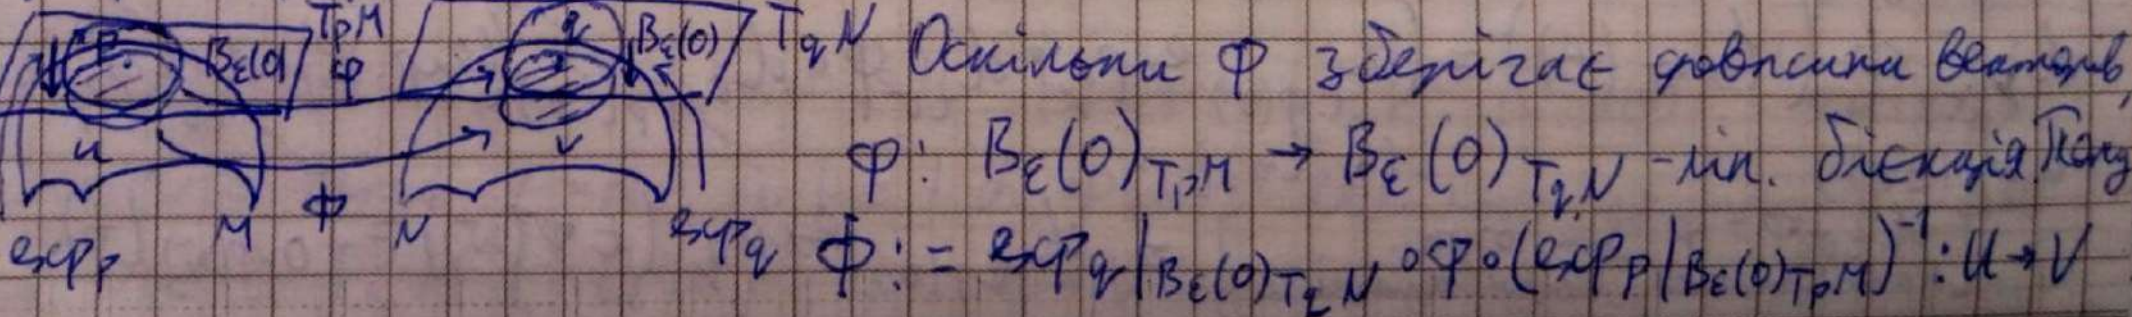 p B_ε(0) T_pM φ q B_ε(0) T_qN
U V
exp_p M Ф N exp_q
Оскільки φ зберігає довжини векторів,
φ: B_ε(0)_{T_pM} → B_ε(0)_{T_qN} - лін. бієкція. Тому
Ф := exp_q|_{B_ε(0)_{T_qN}} ∘ φ ∘ (exp_p|_{B_ε(0)_{T_pM}})^{-1} : U → V